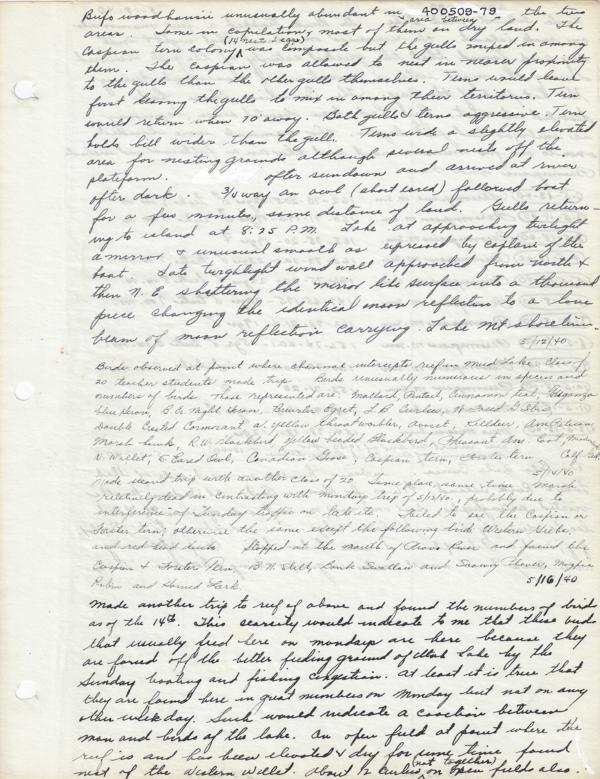 400509-79
Bufo woodhousii unusually abundant in area between the two
areas. Some in copulation, most of them on dry land. The
Caspian tern colony (14 nest 1 egg) was composite but the gulls nested in among
them. The caspian was allowed to nest in nearer proximity
to the gulls than the other gulls themselves. Terns would leave
first leaving the gulls to mix in among their territories. Tern
would return when 70' away. Both gulls & terns aggressive. Tern
holds bill wider than the gull. Terns wide a slightly elevated
area for nesting grounds although several nests off the
plateform. after sundown and arrived at river
after dark. 3/4 way an owl (short eared) followed boat
for a few minutes, some distance of land. Gulls return-
ing to island at 8:25 P.M. Lake at approaching twilight
a mirror & unusual smooth as expressed by captain of the
boat. Late twighlight wind wall approached from north &
then N.E. shattering the mirror like surface into a thousand
piece changing the identical moon reflection to a lone
beam of moon reflection carrying. Lake mt shoreline.
5/12/40
Birds observed at point where channel intercepts reef in Mud Lake. Class of
20 teacher students made trip Birds unusually numerous in species and
numbers of birds. Those represented are: Mallard, Pintail, Cinnamon teal,
blue heron, B.C. Night Heron, Brewster Egret, L.B. Curlew,
Double Crested Cormorant, yellow throat warbler, Avocet, Killdeer, Am Pelican,
Marsh hawk, R.W. blackbird, Yellow headed blackbird, Pheasant, Am. Coot,
W. Willet, S. Eared Owl, Canadian Goose, Caspian tern, Forster tern, Calif. Gull.
5/14/40
Made second trip with another class of 20. Same place, same time. Marsh
relatively dead in contrasting with mondays trip of 5/12/40, probably due to
interference of Sunday traffic on lake site. Failed to see the Caspian or
Forster tern; otherwise the same except the following birds Western Grebe,
and red head ducks. Stopped at the mouth of Provo River and found the
Caspian & Forster Tern, B.N. Stilt, Bank Swallow and Snowy Plover, Magpie
Robin and Horned Lark
5/16/40
Made another trip to reef of above and found the numbers of bird
as of the 14th. This scarcity would indicate to me that these bird
that usually feed here on mondays are here because they
are forced off the better feeding ground of Utah Lake by the
Sunday boating and fishing congestion. At least it is true that
they are found here in great numbers on Monday but not on any
other week day. Such would indicate a coaction between
man and birds of the lake. An open field at point where the
reef is and has been elevated & dry for some time found
nest of the Western Willet. About 12 Curlews (not together) on open fields also.